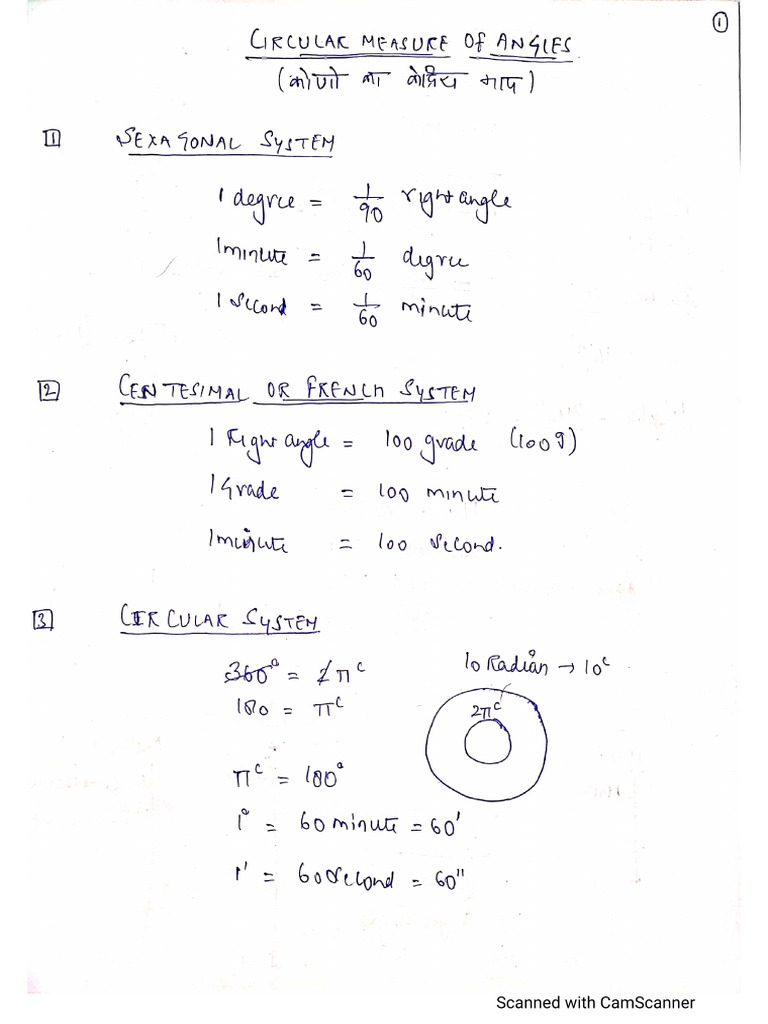 ①
CIRCULAR MEASURE OF ANGLES
(कोणो का केद्रिय माप)
1 SEXAGONAL SYSTEM
1 degree = 1/90 right angle
1 minute = 1/60 degree
1 second = 1/60 minute
2 CENTESIMAL OR FRENCH SYSTEM
1 Right angle = 100 grade (100g)
1 Grade = 100 minute
1 minute = 100 second.
3 CIRCULAR SYSTEM
360° = 2π^c
180 = π^c
10 Radian → 10^c
2π^c
π^c = 180°
1° = 60 minute = 60'
1' = 60 second = 60"
Scanned with CamScanner